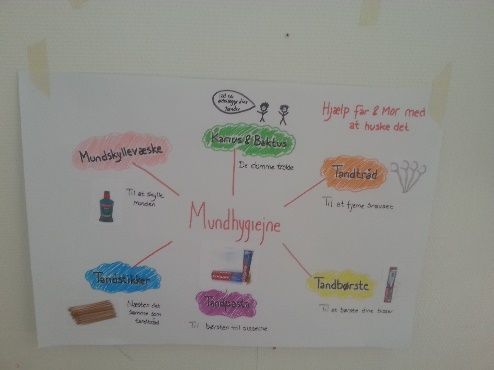 Hjælp far & Mor med
at huske det
Karius & Baktus
De dumme trolde
Mundskyllevæske
Til at skylle
munden
Tandtråd
Til at fjerne snavset
Mundhygiejne
Tandstikker
Næsten det
samme som
tandtråd
Tandpasta
Til børsten til bisserne
Tandbørste
Til at børste dine bisser